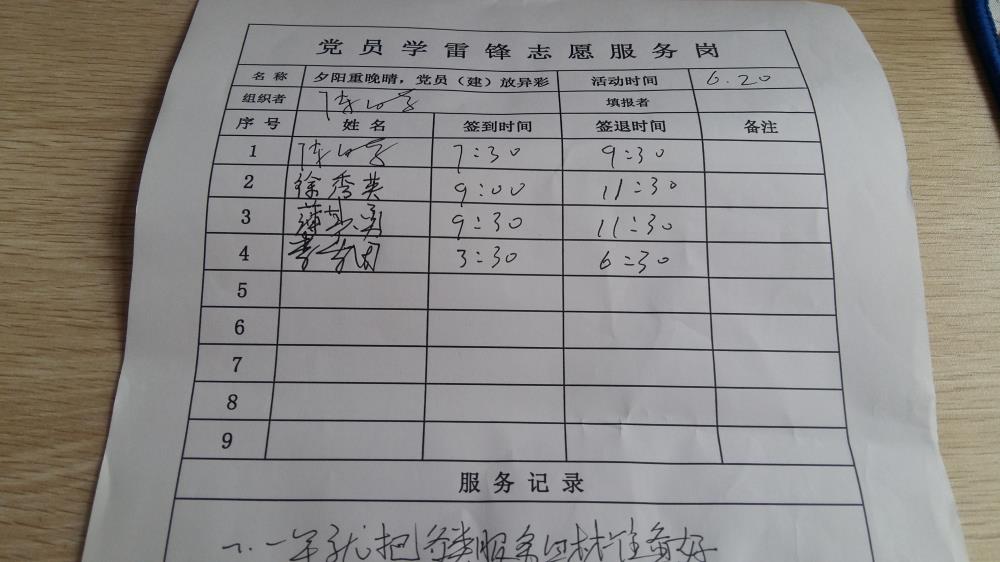 党员学雷锋志愿服务岗
名称 夕阳重晚晴，党员（建）放异彩 活动时间 6.20
组织者 填报者
序号 姓名 签到时间 签退时间 备注
1 7:30 9:30
2 徐秀英 9:00 11:30
3 9:30 11:30
4 3:30 6:30
5
6
7
8
9
服务记录
一早就把各类服务 材准备好